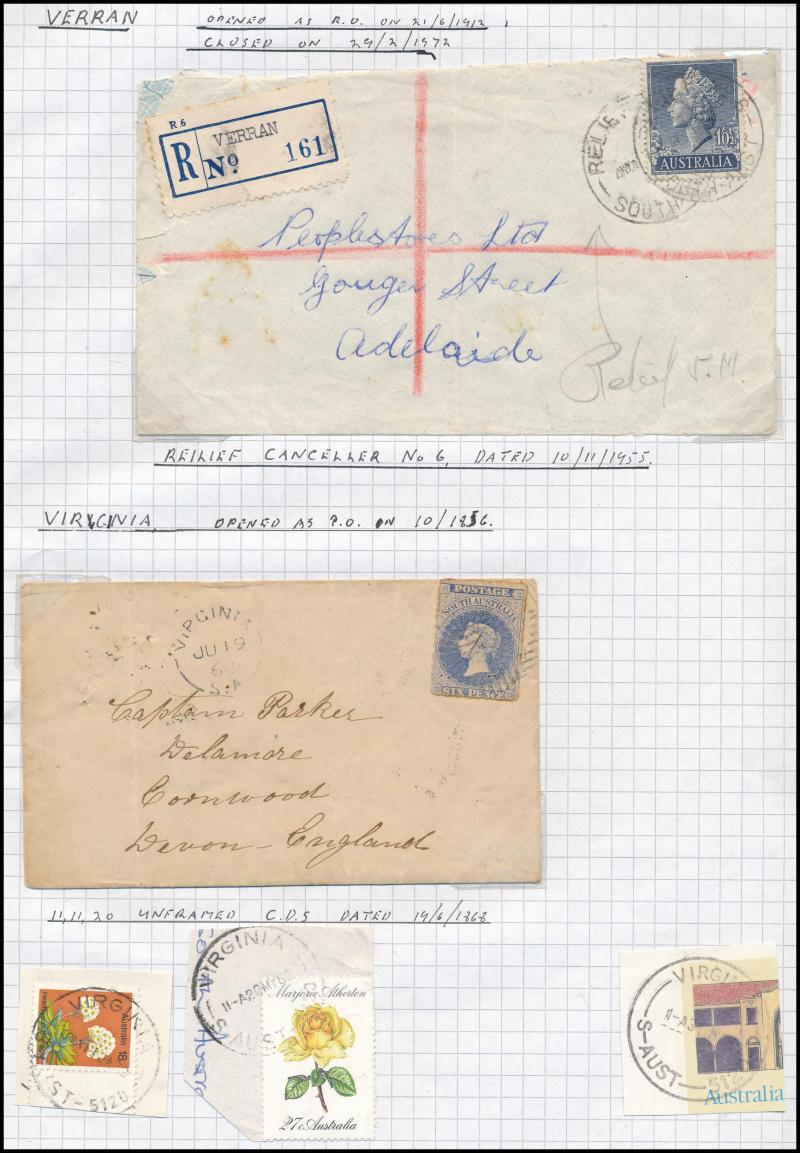 VERRAN OPENED AS R.O. ON 21/6/1912,
CLOSED ON 29/2/1972
R.6
VERRAN
R No 161
RELIEF
SOUTH
1/0½
AUSTRALIA
Peoplestores Ltd
Gouger Street
Adelaide
Relief S.M.
REILIEF CANCELLER No 6, DATED 10/11/1955.
VIRGINIA OPENED AS P.O. ON 10/1856.
VIRGINIA
JU 19
68
S.A
POSTAGE
SOUTH AUSTRALIA
SIX PENCE
Captain Parker
Delamore
Cornwood
Devon - England
11,11,20 UNFRAMED C.D.S DATED 19/6/1868
VIRGINIA
Australia 18c
ST-5120
VIRGINIA
11-A
S-AUST
Marjorie Atherton
27c Australia
VIRGIN
11-A
S-AUST-512
Australia